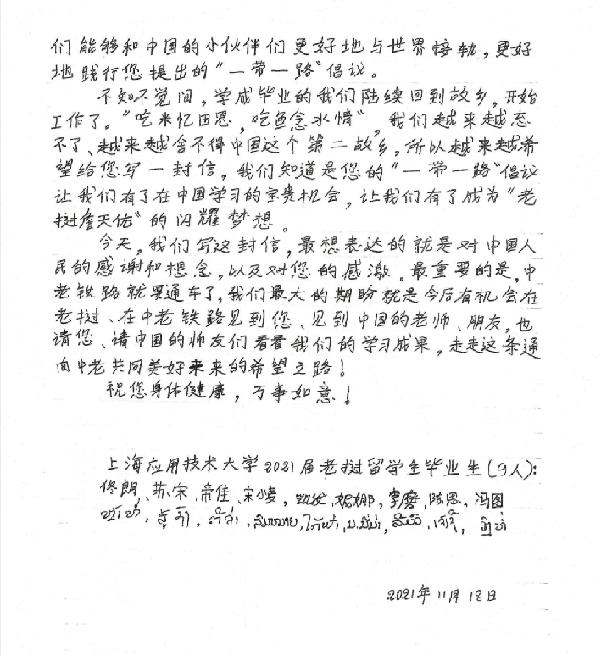 们能够和中国的小伙伴们更好地与世界接轨，更好
地践行您提出的“一带一路”倡议。
不知不觉间，学成毕业的我们陆续回到故乡，开始
工作了。“吃米忆田恩，吃鱼念水情”，我们越来越忍
不了、越来越舍不得中国这个第二故乡，所以越来越希
望给您写一封信。我们知道是您的“一带一路”倡议
让我们有了在中国学习的宝贵机会，让我们有了成为“老
挝詹天佑”的闪耀梦想。
今天，我们写这封信，最想表达的就是对中国人
民的感谢和想念，以及对您的感激。最重要的是，中
老铁路就要通车了，我们最大的期盼就是今后有机会在
老挝、在中老铁路见到您、见到中国的老师、朋友，也
请您、请中国的师友们看看我们的学习成果，走走这条通
向中老共同美好未来的希望之路！
祝您身体健康，万事如意！
上海应用技术大学2021届老挝留学生毕业生（9人）：
佟朗、苏宋、
2021年11月12日